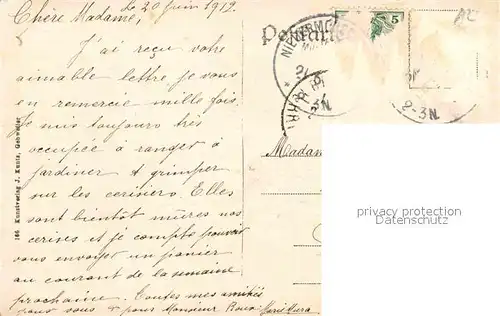 Chère Madame, le 20 Juin 1912
J'ai reçu votre
aimable lettre je vous
en remercie mille fois.
Je suis toujours très
occupée à ranger à
jardiner et grimper
sur les cerisiers. Elles
sont bientôt mûres nos
cerises et je compte pouvoir
vous envoyer un panier
au courant de la semaine
prochaine. Toutes mes amitiés
pour vous & pour Monsieur
166 Kunstverlag J. Kuntz, Gebweiler
Postkarte
5
2-3N.
2-3N.
Madame
privacy protection
Datenschutz